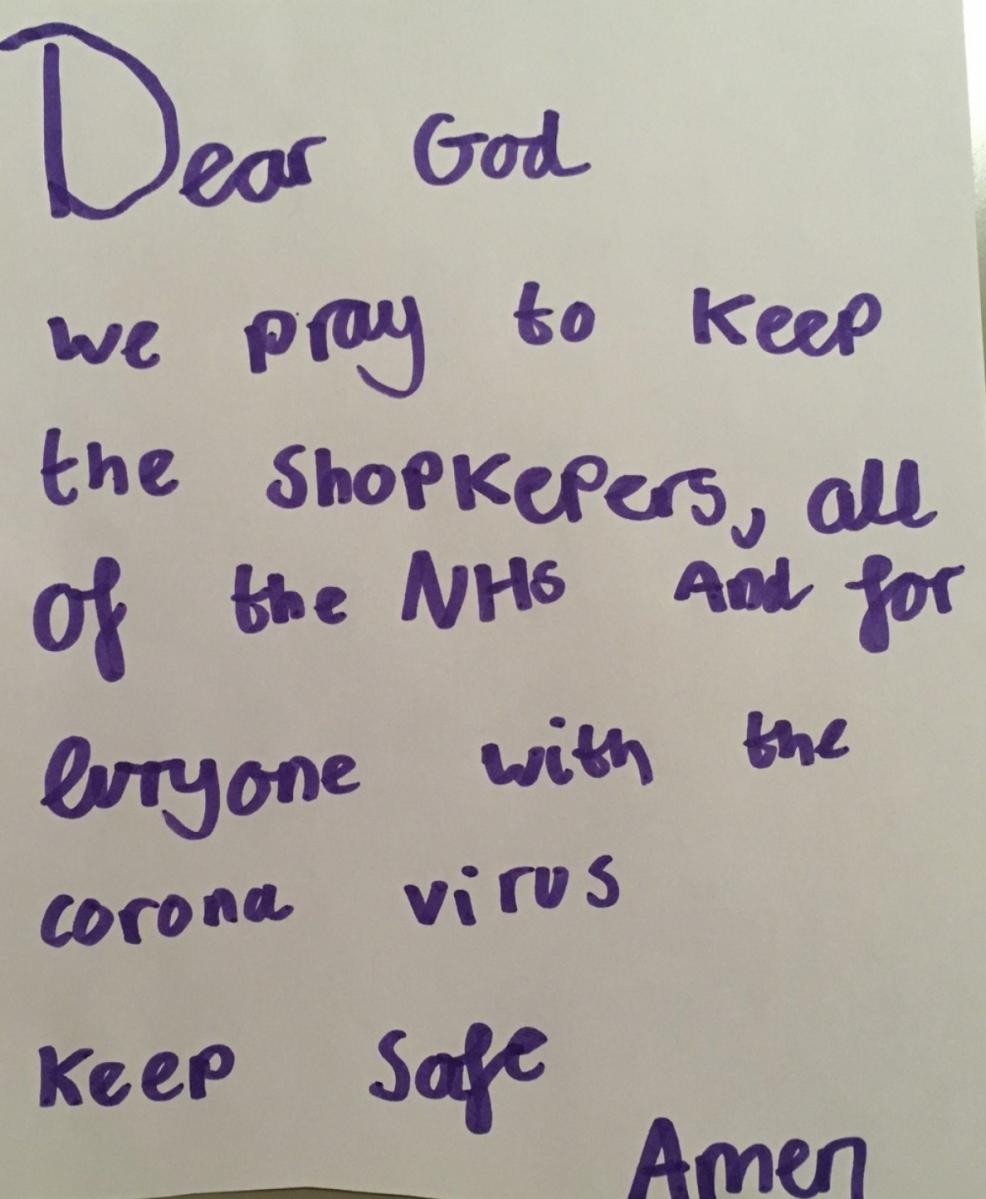 Dear God
we pray to keep
the shopkepers, all
of the NHS And for
evryone with the
corona virus
Keep Safe
Amen